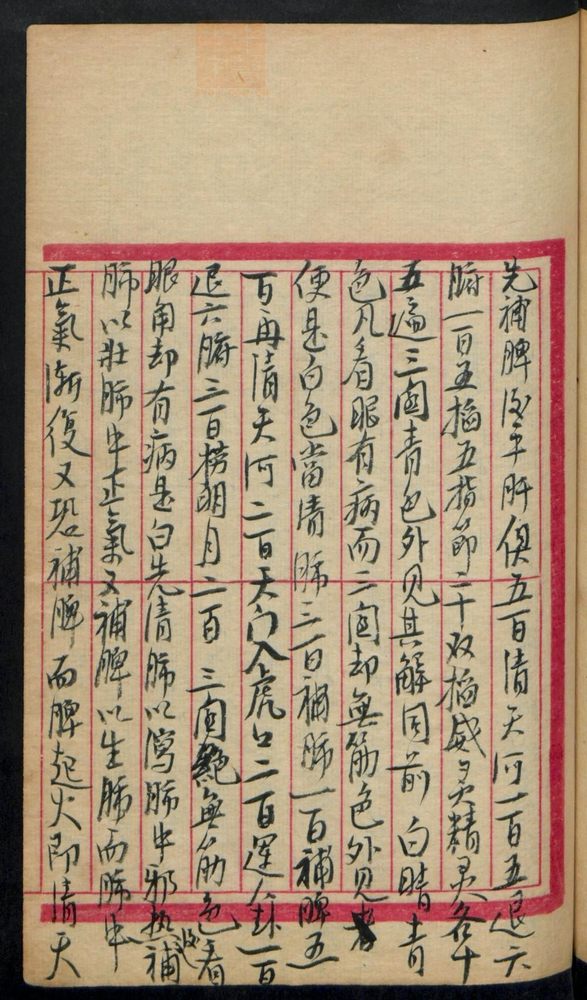 先補脾後平肝俱五百清天河一百五退六
腑一百五掐五指節二十次掐威灵精灵各十
五遍三関青色外見其解同前 白睛青
色凡看眼有病而三関却無筋色外見者
便是白色當清肺三百補肺一百補脾五
百再清天河二百天门入虎口二百運 一百
退六腑三百撈明月二百 三関 無筋色看
眼角却有病是白先清肺以瀉肺中邪热後補
肺以壯肺中正氣又補脾以生肺而肺中
正氣漸復又恐補脾而脾起火即清天